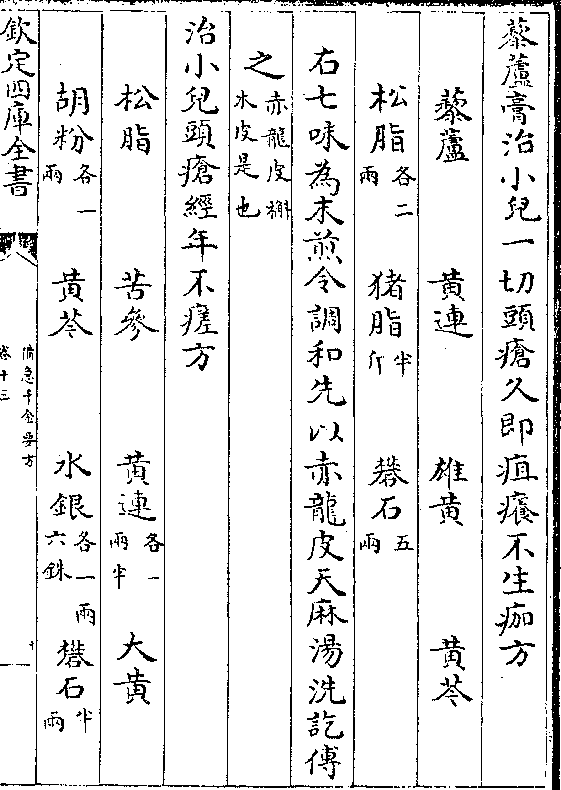 藜蘆膏治小兒一切頭瘡久即疽癢不生痂方
藜蘆 黄連 雄黄 黄芩
松脂各二兩 猪脂半斤 礬石五兩
右七味為末煎令調和先以赤龍皮天麻湯洗訖傅
之赤龍皮槲木皮是也
治小兒頭瘡經年不瘥方
松脂 苦參 黄連各一兩半 大黄
胡粉各一兩 黄芩 水銀各一兩六銖 礬石半兩
欽定四庫全書
備急千金要方
卷十三